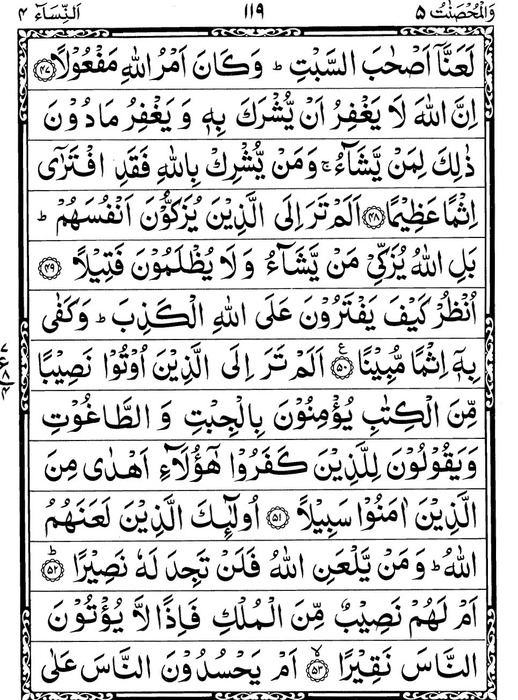 وَالْمُحْصَنٰتُ ۵ ۱۱۹ اَلنِّسَآء ۴
لَعَنَّاۤ اَصْحٰبَ السَّبْتِ ؕ وَكَانَ اَمْرُ اللّٰهِ مَفْعُوْلًا ﴿۴۷﴾
اِنَّ اللّٰهَ لَا يَغْفِرُ اَنْ يُّشْرَكَ بِهٖ وَ يَغْفِرُ مَا دُوْنَ
ذٰلِكَ لِمَنْ يَّشَآءُ ۚ وَمَنْ يُّشْرِكْ بِاللّٰهِ فَقَدِ افْتَرٰۤى
اِثْمًا عَظِيْمًا ﴿۴۸﴾ اَلَمْ تَرَ اِلَى الَّذِيْنَ يُزَكُّوْنَ اَنْفُسَهُمْ ؕ
بَلِ اللّٰهُ يُزَكِّىْ مَنْ يَّشَآءُ وَلَا يُظْلَمُوْنَ فَتِيْلًا ﴿۴۹﴾
اُنْظُرْ كَيْفَ يَفْتَرُوْنَ عَلَى اللّٰهِ الْكَذِبَ ؕ وَكَفٰى
بِهٖۤ اِثْمًا مُّبِيْنًا ﴿۵۰﴾ ع اَلَمْ تَرَ اِلَى الَّذِيْنَ اُوْتُوْا نَصِيْبًا
مِّنَ الْكِتٰبِ يُؤْمِنُوْنَ بِالْجِبْتِ وَ الطَّاغُوْتِ
وَيَقُوْلُوْنَ لِلَّذِيْنَ كَفَرُوْا هٰۤؤُلَآءِ اَهْدٰى مِنَ
الَّذِيْنَ اٰمَنُوْا سَبِيْلًا ﴿۵۱﴾ اُولٰٓئِكَ الَّذِيْنَ لَعَنَهُمُ
اللّٰهُ ؕ وَمَنْ يَّلْعَنِ اللّٰهُ فَلَنْ تَجِدَ لَهٗ نَصِيْرًا ﴿۵۲﴾ ؕ
اَمْ لَهُمْ نَصِيْبٌ مِّنَ الْمُلْكِ فَاِذًا لَّا يُؤْتُوْنَ
النَّاسَ نَقِيْرًا ﴿۵۳﴾ ۙ اَمْ يَحْسُدُوْنَ النَّاسَ عَلٰى